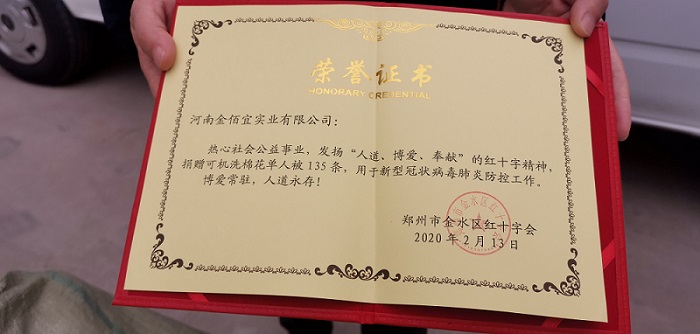 荣誉证书
HONORARY CREDENTIAL
河南金佰宜实业有限公司：
热心社会公益事业，发扬“人道、博爱、奉献”的红十字精神，
捐赠可机洗棉花单人被135条，用于新型冠状病毒肺炎防控工作。
博爱常驻，人道永存！
郑州市金水区红十字会
2020年2月13日